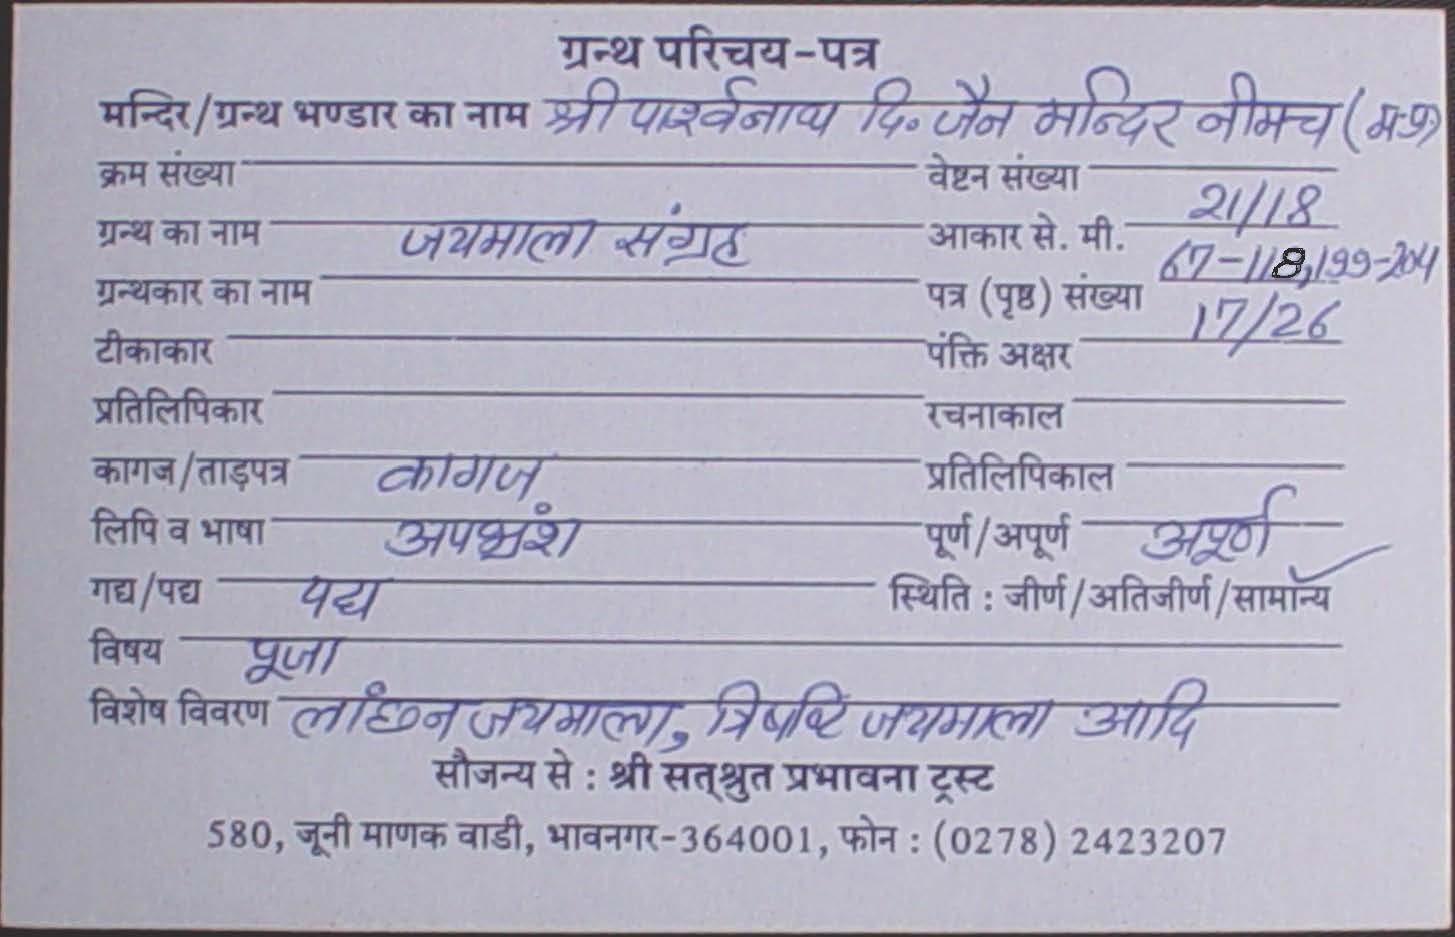 ग्रन्थ परिचय-पत्र
मन्दिर/ग्रन्थ भण्डार का नाम श्री पार्श्वनाथ दि. जैन मन्दिर नीमच (म.प्र.)
क्रम संख्या वेष्टन संख्या 21/18
ग्रन्थ का नाम जयमाला संग्रह आकार से. मी.
ग्रन्थकार का नाम पत्र (पृष्ठ) संख्या 67-118,199-204
टीकाकार पंक्ति अक्षर 17/26
प्रतिलिपिकार रचनाकाल
कागज/ताड़पत्र कागज प्रतिलिपिकाल
लिपि व भाषा अपभ्रंश पूर्ण/अपूर्ण अपूर्ण
गद्य/पद्य पद्य स्थिति : जीर्ण/अतिजीर्ण/सामान्य ✓
विषय पूजा
विशेष विवरण लांछन जयमाला, त्रिषष्टि जयमाला आदि
सौजन्य से : श्री सत्श्रुत प्रभावना ट्रस्ट
580, जूनी माणक वाडी, भावनगर-364001, फोन : (0278) 2423207